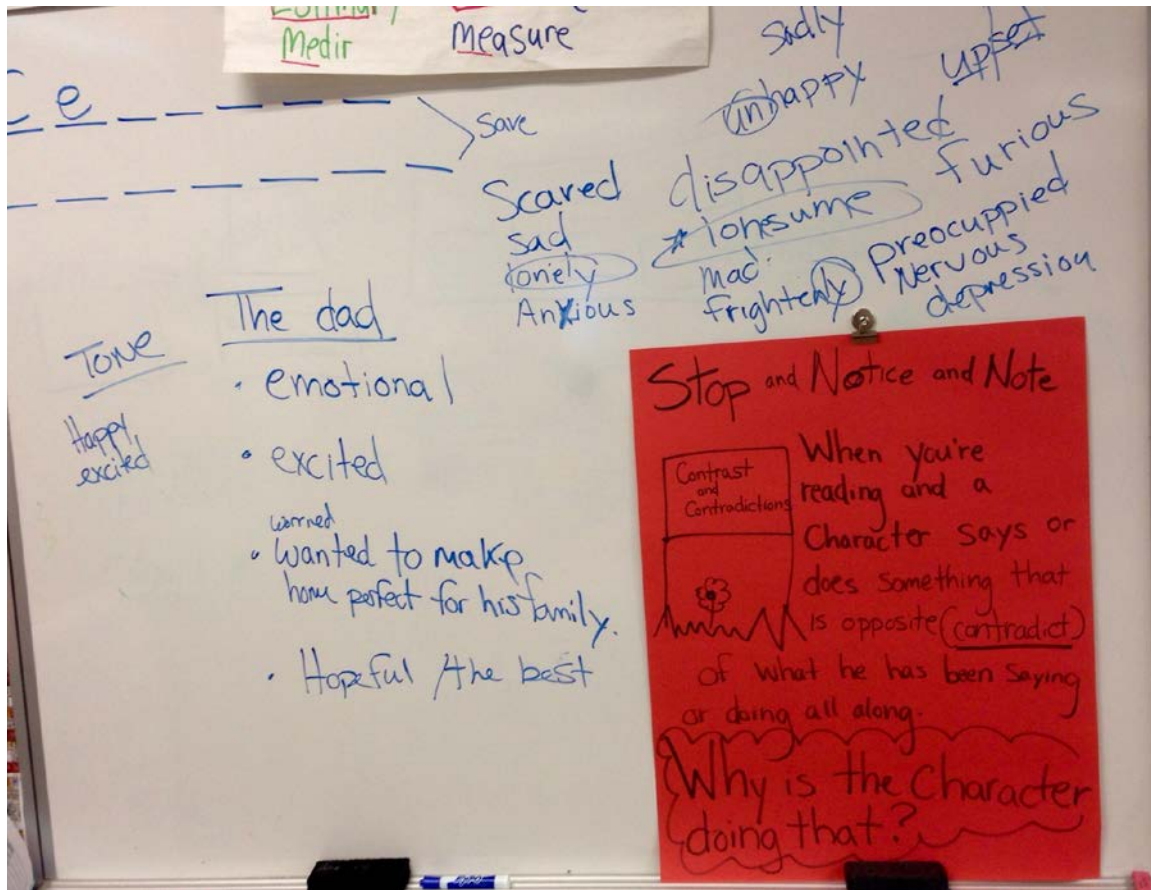 Medir Measure
Ce
save
sadly
unhappy
upset
disappointed
furious
Scared
sad
lonely
Anxious
* lonesume
mad
frightenly
preocuppied
Nervous
depression
Tone
Happy
excited
The dad
• emotional
• excited
worried
• Wanted to make
home perfect for his family.
• Hopeful /the best
Stop and Notice and Note
Contrast
and
Contradictions
When you're
reading and a
Character says or
does something that
is opposite (contradict)
of what he has been saying
or doing all along.
Why is the Character
doing that?